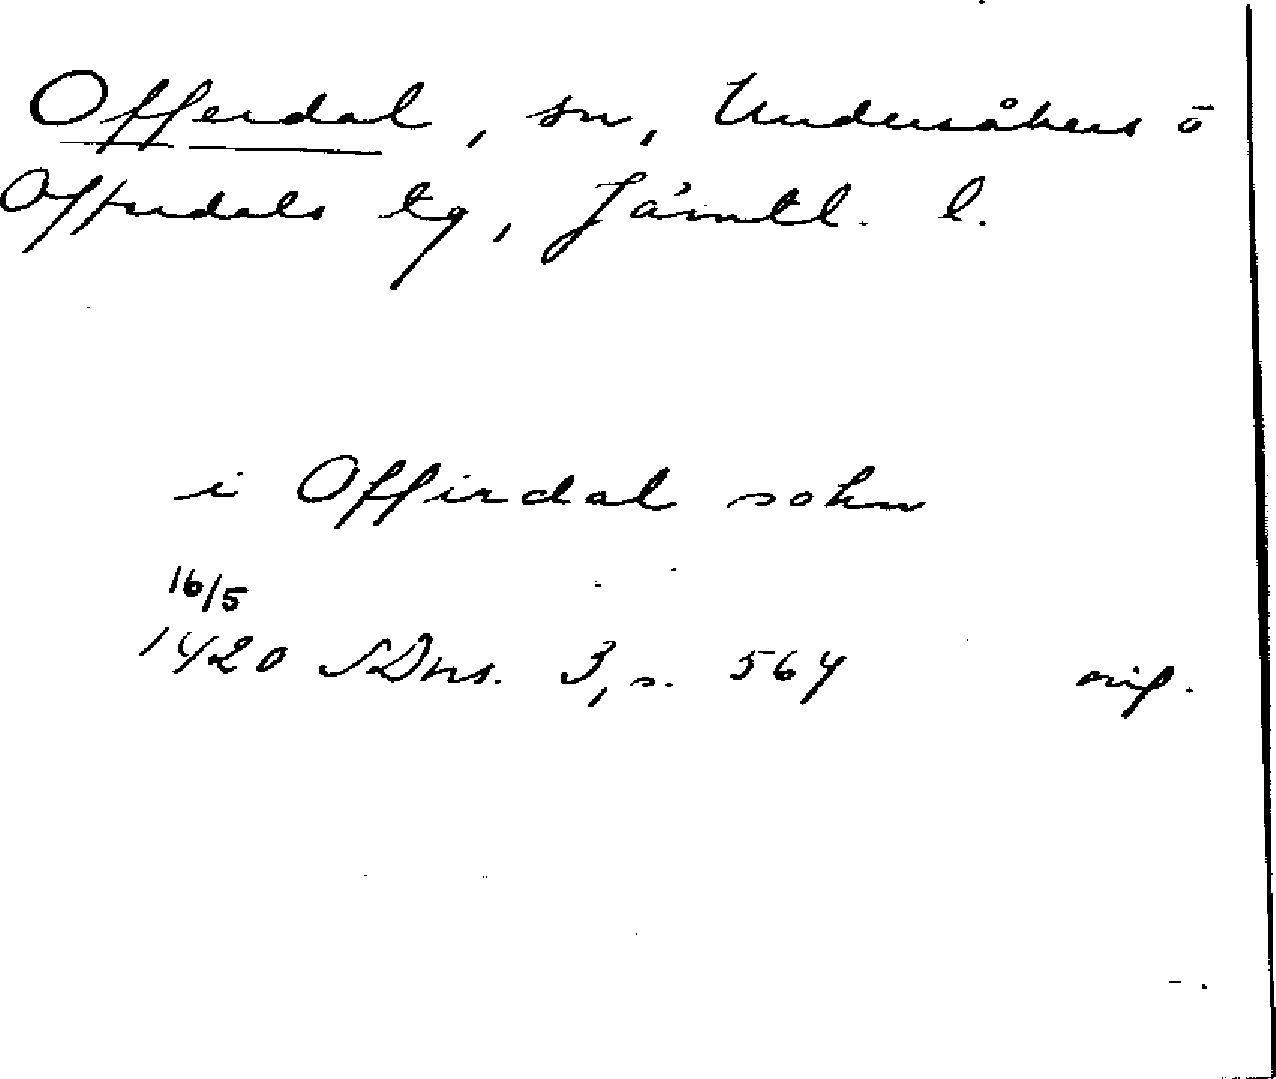 Offerdal, sn, Undersåkers o
Offerdals tg, Jämtl. l.
i Offirdal sokn
16/5
1420 SDns. 3, s. 564 orig.